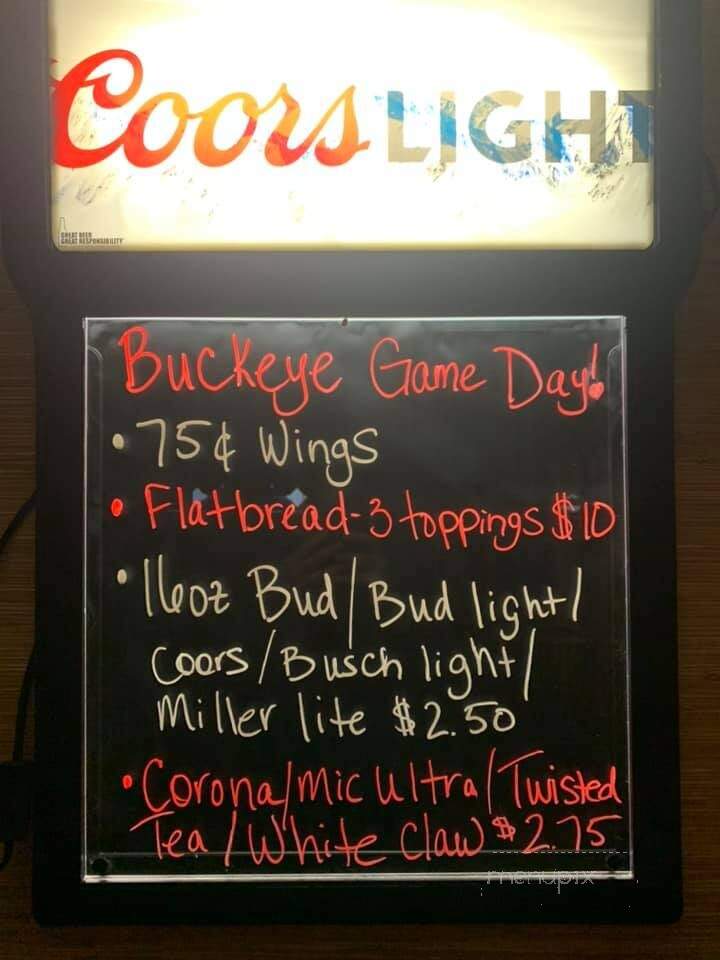 Coors LIGHT
GREAT BEER
GREAT RESPONSIBILITY
Buckeye Game Day!
• 75¢ Wings
• Flatbread-3 toppings $10
• 16oz Bud/Bud light/
Coors/Busch light/
Miller lite $2.50
• Corona/Mic Ultra/Twisted
Tea/White Claw $2.75
menupix